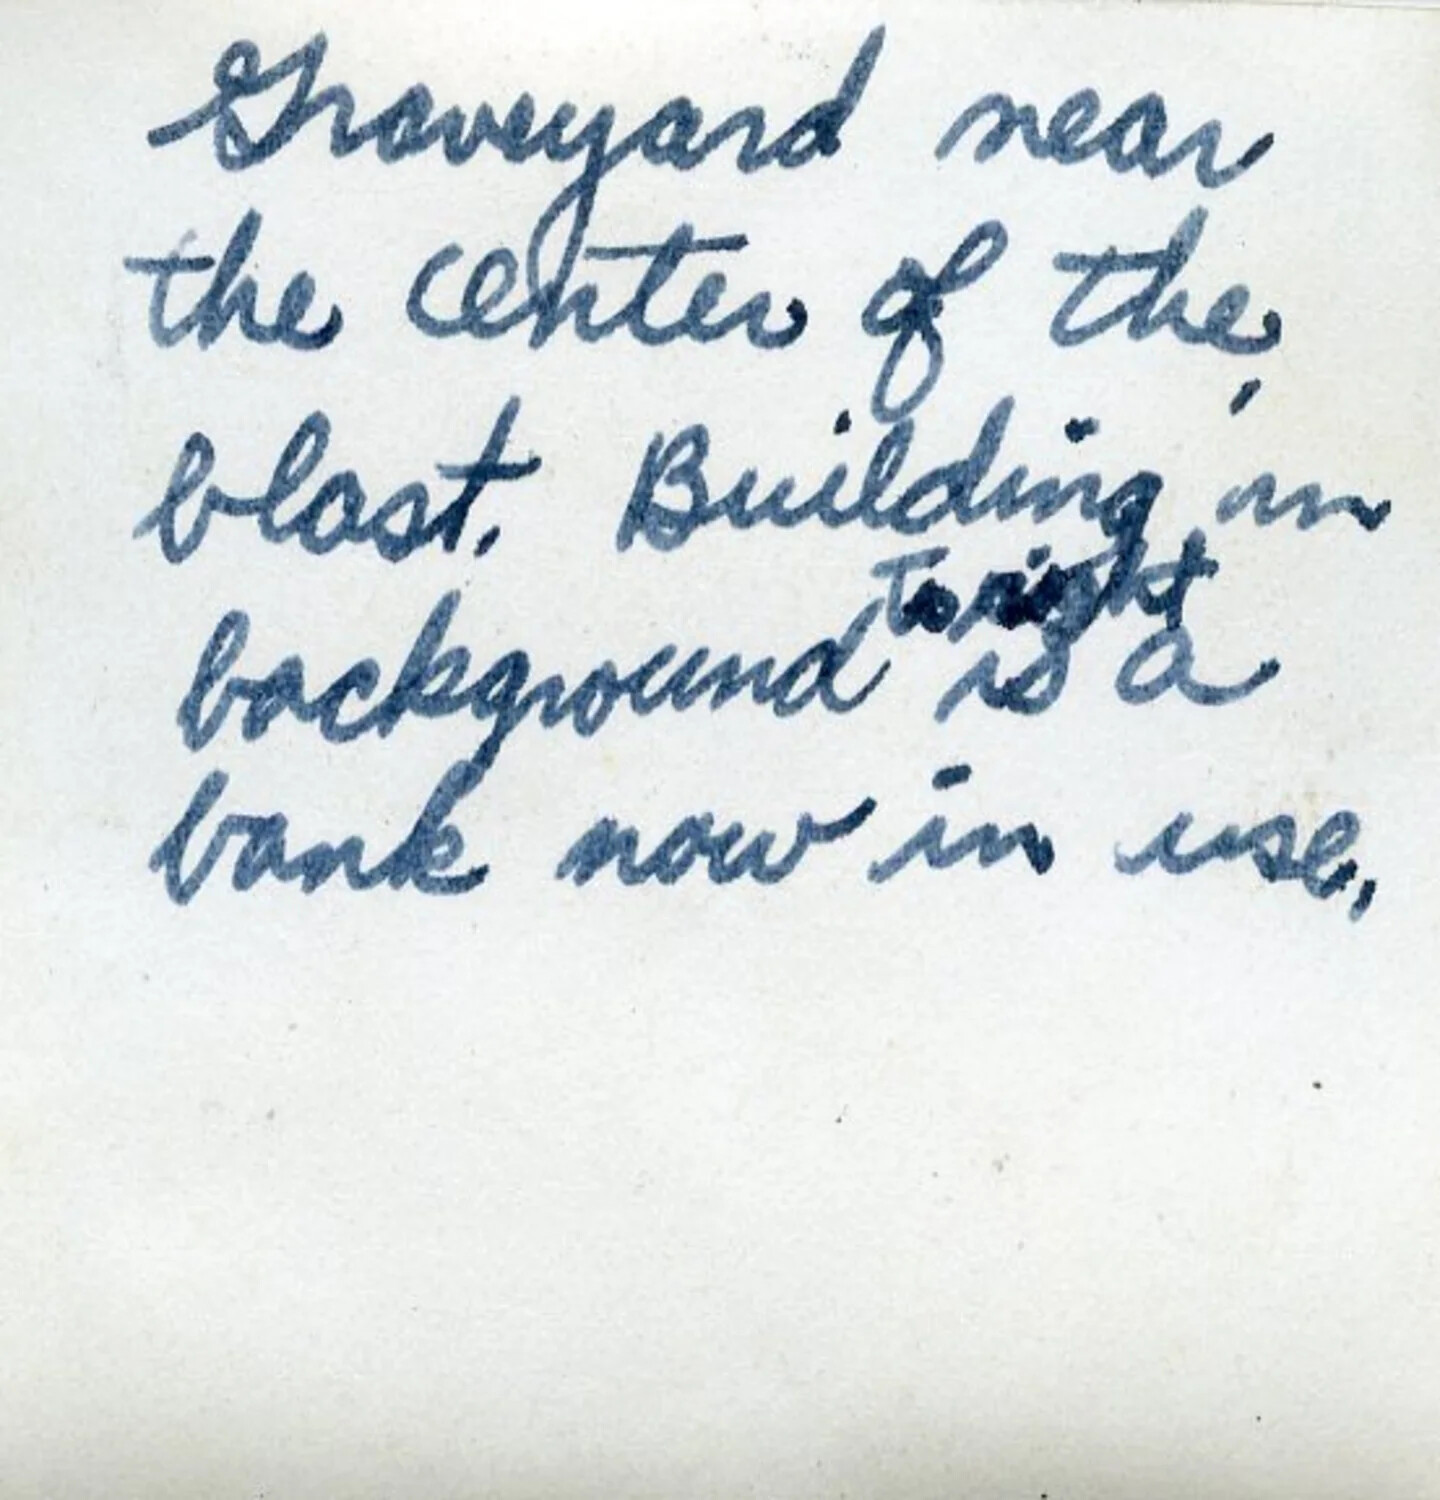 Graveyard near
the center of the
blast. Building in
to right
background is a
bank now in use.